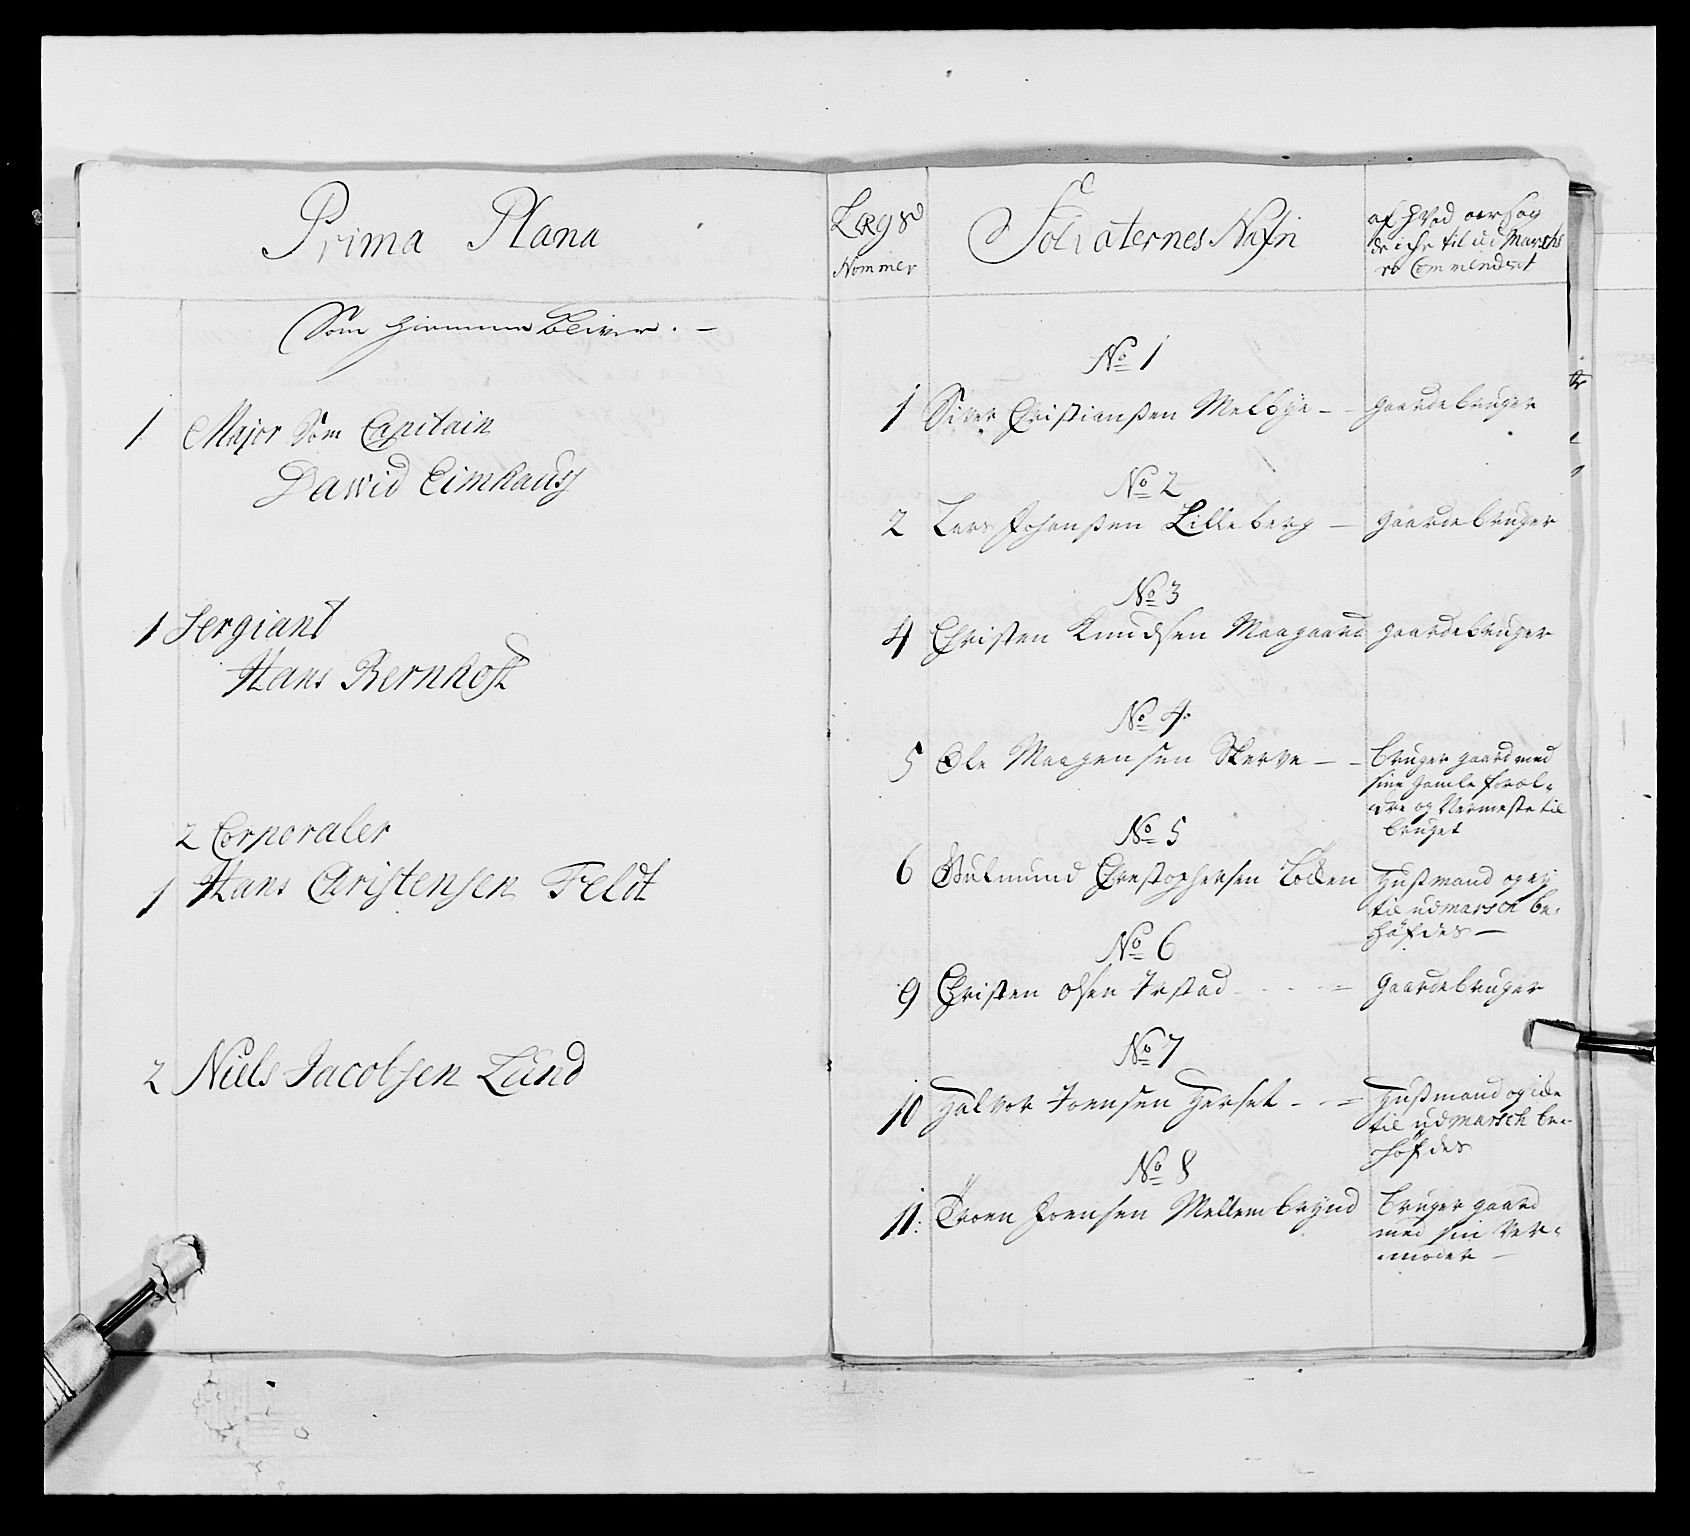 Prima Plana
Som hiemme bliver. –
1 Major Som Capitain
Dawid Eimhaus
1 Sergiant
Hans Bernhoft
2 Corporaler
1 Hans Christensen Feldt
2 Niels Jacobsen Lund
Lægs
Nommer
Soldaternes Nafn
af hvad aarsag
de iche til ud Marsch
er Commendert
No 1
1 Siver Christianßen Melbye – – gaardebruger
No 2
2 Lars Johanßen Lilleberg – gaardebruger
No 3
4 Christen Knudsen Maagaard gaardebruger
No 4
5 Ole Maagensen Skerve – – bruger gaard med
sine gamle foræl-
dre og Nermeste til
bruget
No 5
6 Gulmund Christophersen Lochen Husmand og ej
til udmarsch be-
höfdes –
No 6
9 Christen Olsen Irstad gaardebruger
No 7
10 Halvor Joensen Herset – – Husmand og icke
til udmarsch be-
höfdes
No 8
11: Troen Joensen Mellembrynd bruger gaard
med sin Ver-
moder –